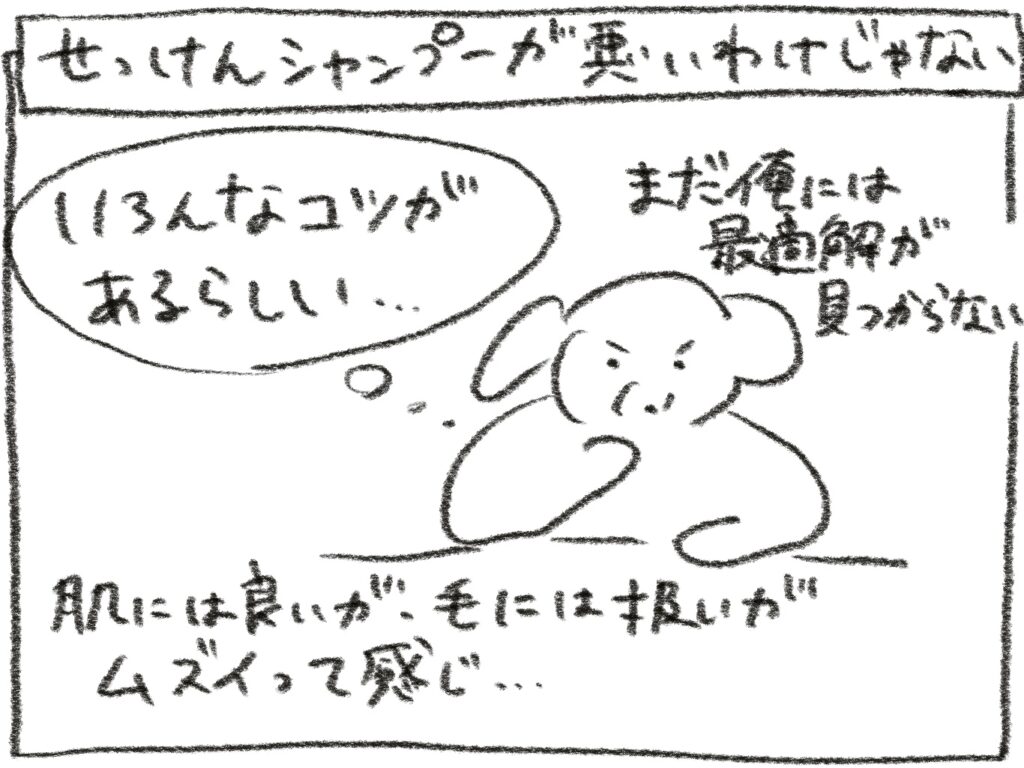 せっけんシャンプーが悪いわけじゃない
いろんなコツが
あるらしい…
まだ俺には
最適解が
見つからない
肌には良いが、毛には扱いが
ムズイって感じ…